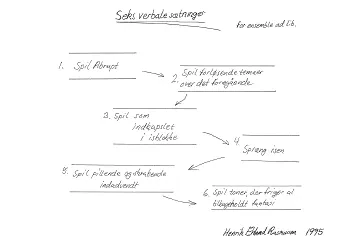 Seks verbale satninger
For ensemble ad lib.
1. Spil Abrupt
2. Spil forløsende temaer
over det foregående
3. Spil som
indkapslet
i isblokke
4.
Spræng isen
5. Spil pillende og skrabende
indadvendt
6. Spil toner, der frigør al
tilbageholdt fantasi
Henrik Ehland Rasmussen 1995